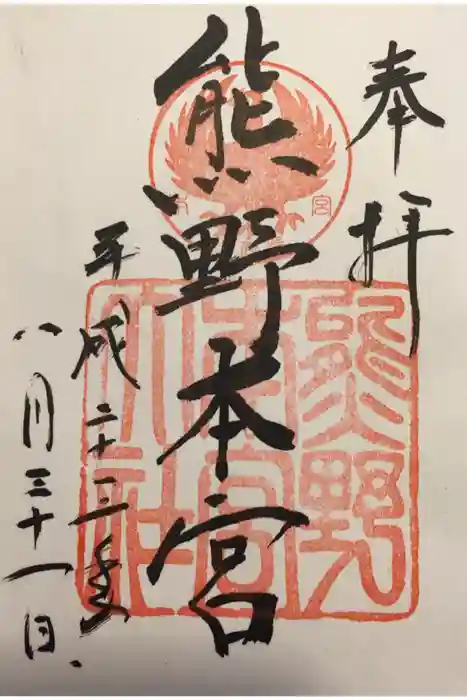 奉拝
熊野本宮
平成二十三年
八月三十一日
熊野
本宮
大社